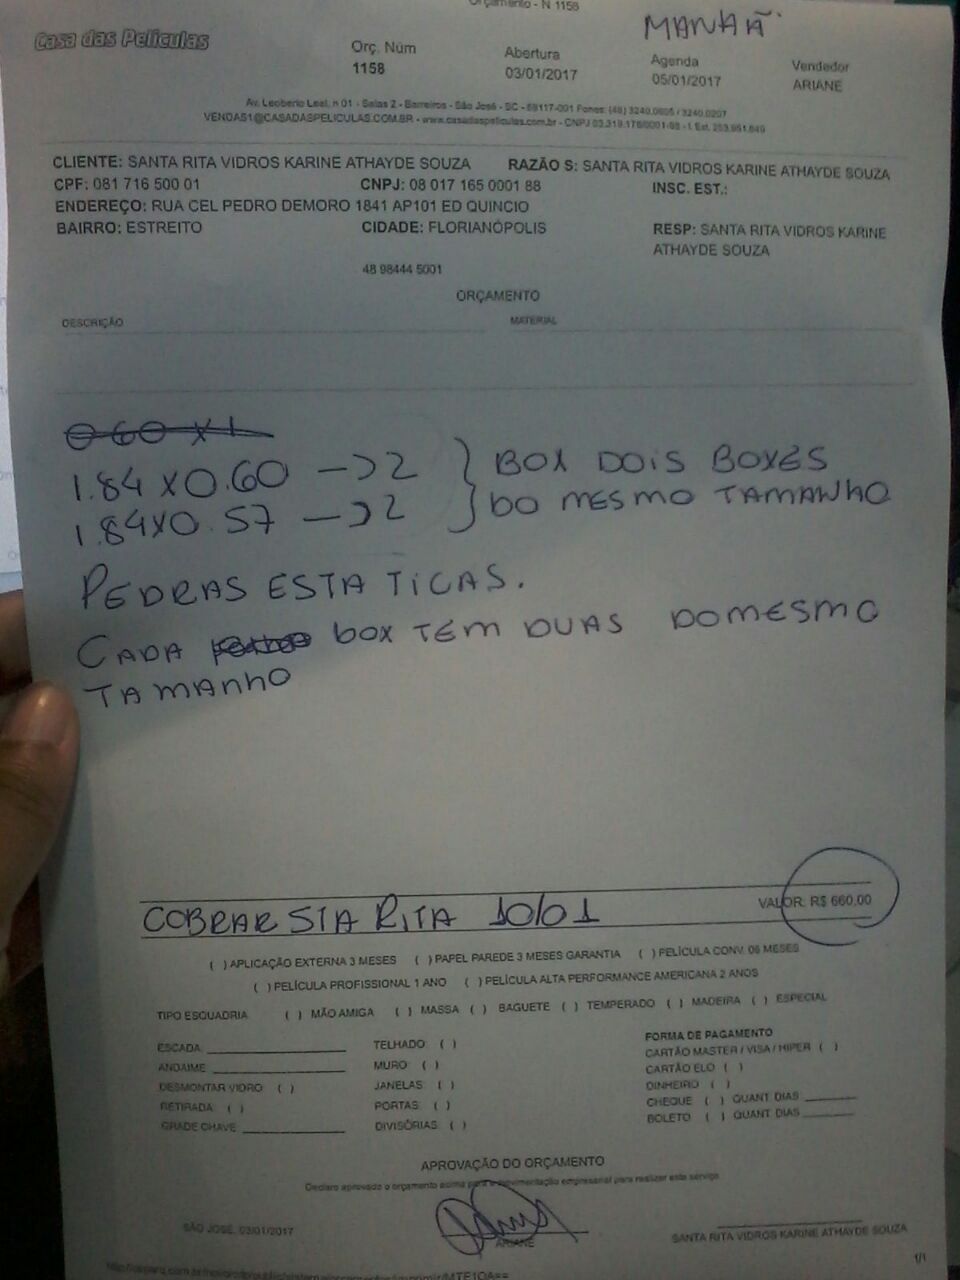 Orçamento - N 1158
MANHÃ
Casa das Películas
Orç. Núm
1158
Abertura
03/01/2017
Agenda
05/01/2017
Vendedor
ARIANE
Av. Leoberto Leal, n 01 - Salas 2 - Barreiros - São José - SC - 88117-001 Fones: (48) 3240.0605 / 3240.0207
VENDAS1@CASADASPELICULAS.COM.BR - www.casadaspeliculas.com.br - CNPJ
CLIENTE: SANTA RITA VIDROS KARINE ATHAYDE SOUZA RAZÃO S: SANTA RITA VIDROS KARINE ATHAYDE SOUZA
CPF: 081 716 500 01 CNPJ: 08 017 165 0001 88 INSC. EST.:
ENDEREÇO: RUA CEL PEDRO DEMORO 1841 AP101 ED QUINCIO
BAIRRO: ESTREITO CIDADE: FLORIANÓPOLIS RESP: SANTA RITA VIDROS KARINE
ATHAYDE SOUZA
48 98444 5001
ORÇAMENTO
DESCRIÇÃO MATERIAL
0.60 X 1
1.84 X 0.60 → 2 } BOX DOIS BOXES
1.84 X 0.57 → 2 } DO MESMO TAMANHO
PEDRAS ESTATICAS.
CADA BOX TEM DUAS DO MESMO
TAMANHO
COBRAR STA RITA 10/01 VALOR: R$ 660,00
( ) APLICAÇÃO EXTERNA 3 MESES ( ) PAPEL PAREDE 3 MESES GARANTIA ( ) PELÍCULA CONV. 06 MESES
( ) PELÍCULA PROFISSIONAL 1 ANO ( ) PELÍCULA ALTA PERFORMANCE AMERICANA 2 ANOS
TIPO ESQUADRIA ( ) MÃO AMIGA ( ) MASSA ( ) BAGUETE ( ) TEMPERADO ( ) MADEIRA ( ) ESPECIAL
ESCADA
ANDAIME
DESMONTAR VIDRO ( )
RETIRADA ( )
GRADE CHAVE
TELHADO ( )
MURO ( )
JANELAS ( )
PORTAS ( )
DIVISÓRIAS ( )
FORMA DE PAGAMENTO
CARTÃO MASTER / VISA / HIPER ( )
CARTÃO ELO ( )
DINHEIRO ( )
CHEQUE ( ) QUANT DIAS
BOLETO ( ) QUANT DIAS
APROVAÇÃO DO ORÇAMENTO
Declaro aprovado o orçamento acima para a movimentação empresarial para realizar este serviço
SÃO JOSE, 03/01/2017
ARIANE
SANTA RITA VIDROS KARINE ATHAYDE SOUZA
1/1